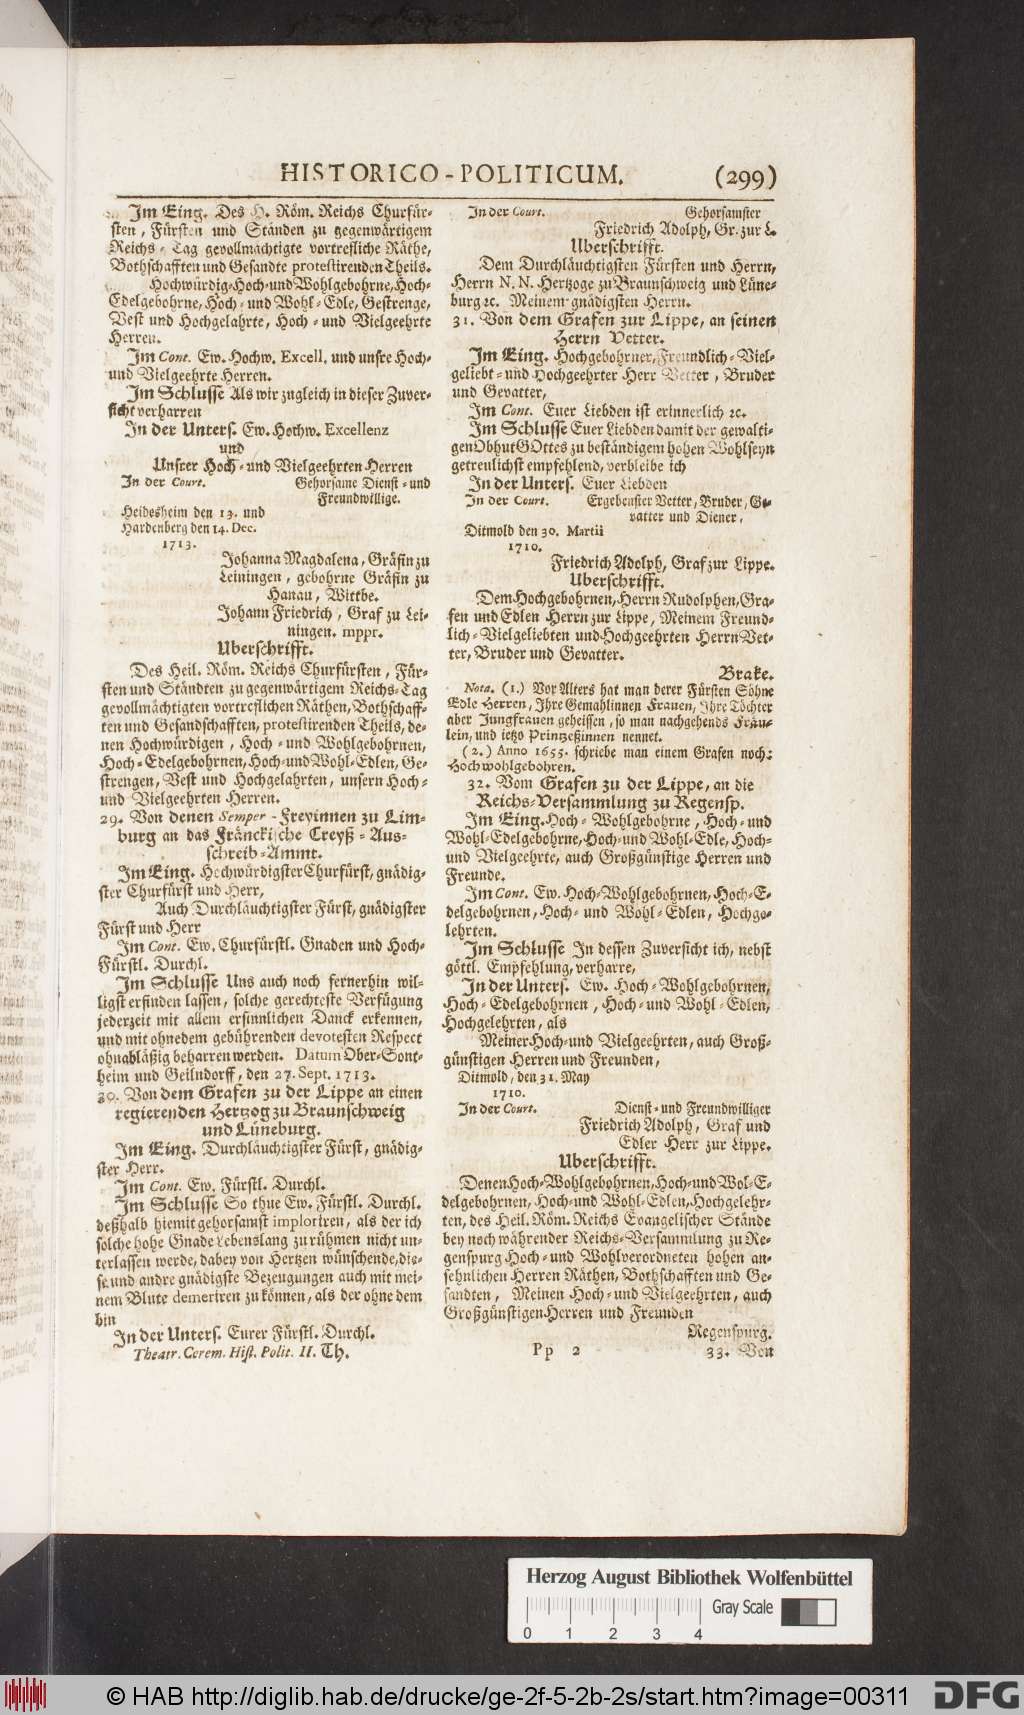 HISTORICO-POLITICUM. (299)
Im Eing. Des H. Röm. Reichs Churfür-
sten, Fürsten und Ständen zu gegenwärtigem
Reichs-Tag gevollmächtigte vortrefliche Räthe,
Bothschafften und Gesandte protestirenden Theils.
Hochwürdig-Hoch-und Wohlgebohrne, Hoch-
Edelgebohrne, Hoch- und Wohl-Edle, Gestrenge,
Vest und Hochgelahrte, Hoch- und Vielgeehrte
Herren.
Im Cont. Ew. Hochw. Excell. und unsre Hoch-
und Vielgeehrte Herren.
Im Schlusse Als wir zugleich in dieser Zuver-
sicht verharren
In der Unters. Ew. Hochw. Excellenz
und
Unsrer Hoch- und Vielgeehrten Herren
In der Court. Gehorsame Dienst- und
Freundwillige.
Heidesheim den 13. und
Hardenberg den 14. Dec.
1713.
Johanna Magdalena, Gräfin zu
Leiningen, gebohrne Gräfin zu
Hanau, Wittbe.
Johann Friedrich, Graf zu Lei-
ningen. mppr.
Uberschrifft.
Des Heil. Röm. Reichs Churfürsten, Für-
sten und Ständten zu gegenwärtigem Reichs-Tag
gevollmächtigten vortreflichen Räthen, Bothschaff-
ten und Gesandschafften, protestirenden Theils, de-
nen Hochwürdigen, Hoch- und Wohlgebohrnen,
Hoch-Edelgebohrnen, Hoch-und Wohl-Edlen, Ge-
strengen, Vest und Hochgelahrten, unsern Hoch-
und Vielgeehrten Herren.
29. Von denen Semper-Freyinnen zu Lim-
burg an das Fränckische Creyß-Aus-
schreib-Ammt.
Im Eing. Hochwürdigster Churfürst, gnädig-
ster Churfürst und Herr,
Auch Durchläuchtigster Fürst, gnädigster
Fürst und Herr
Im Cont. Ew. Churfürstl. Gnaden und Hoch-
Fürstl. Durchl.
Im Schlusse Uns auch noch fernerhin wil-
ligst erfinden lassen, solche gerechteste Verfügung
jederzeit mit allem ersinnlichen Danck erkennen,
und mit ohnedem gebührenden devotesten Respect
ohnabläßig beharren werden. Datum Ober-Sont-
heim und Geilndorff, den 27. Sept. 1713.
30. Von dem Grafen zu der Lippe an einen
regierenden Hertzog zu Braunschweig
und Lüneburg.
Im Eing. Durchläuchtigster Fürst, gnädig-
ster Herr.
Im Cont. Ew. Fürstl. Durchl.
Im Schlusse So thue Ew. Fürstl. Durchl.
deßhalb hiemit gehorsamst imploriren, als der ich
solche hohe Gnade Lebenslang zu rühmen nicht un-
terlassen werde, dabey von Hertzen wünschende, die-
se und andre gnädigste Bezeugungen auch mit mei-
nem Blute demeriren zu können, als der ohne dem
bin
In der Unters. Eurer Fürstl. Durchl.
Theatr. Cerem. Hist. Polit. II. Th.
In der Court. Gehorsamster
Friedrich Adolph, Gr. zur L.
Uberschrifft.
Dem Durchläuchtigsten Fürsten und Herrn,
Herrn N. N. Hertzoge zu Braunschweig und Lüne-
burg ꝛc. Meinem gnädigsten Herrn.
31. Von dem Grafen zur Lippe, an seinen
Herrn Vetter.
Im Eing. Hochgebohrner, Freundlich-Viel-
geliebt- und Hochgeehrter Herr Vetter, Bruder
und Gevatter,
Im Cont. Euer Liebden ist erinnerlich ꝛc.
Im Schlusse Euer Liebden damit der gewalti-
gen Obhut GOttes zu beständigem hohen Wohlseyn
getreulichst empfehlend, verbleibe ich
In der Unters. Euer Liebden
In der Court. Ergebenster Vetter, Bruder, Ge-
vatter und Diener,
Ditmold den 30. Martii
1710.
Friedrich Adolph, Graf zur Lippe.
Uberschrifft.
Dem Hochgebohrnen, Herrn Rudolphen, Gra-
fen und Edlen Herrn zur Lippe, Meinem Freund-
lich-Vielgeliebten und Hochgeehrten Herrn Vet-
ter, Bruder und Gevatter.
Brake.
Nota. (1.) Vor Alters hat man derer Fürsten Söhne
Edle Herren, Ihre Gemahlinnen Frauen, Ihre Töchter
aber Jungfrauen geheissen, so man nachgehends Fräu-
lein, und ietzo Printzeßinnen nennet.
(2.) Anno 1655. schriebe man einem Grafen noch:
Hochwohlgebohren.
32. Vom Grafen zu der Lippe, an die
Reichs-Versammlung zu Regensp.
Im Eing. Hoch-Wohlgebohrne, Hoch- und
Wohl-Edelgebohrne, Hoch-und Wohl-Edle, Hoch-
und Vielgeehrte, auch Großgünstige Herren und
Freunde.
Im Cont. Ew. Hoch-Wohlgebohrnen, Hoch-E-
delgebohrnen, Hoch- und Wohl-Edlen, Hochge-
lehrten.
Im Schlusse In dessen Zuversicht ich, nebst
göttl. Empfehlung, verharre,
In der Unters. Ew. Hoch-Wohlgebohrnen,
Hoch-Edelgebohrnen, Hoch- und Wohl-Edlen,
Hochgelehrten, als
Meiner Hoch-und Vielgeehrten, auch Groß-
günstigen Herren und Freunden,
Ditmold, den 31. May
1710.
In der Court. Dienst- und Freundwilliger
Friedrich Adolph, Graf und
Edler Herr zur Lippe.
Uberschrifft.
Denen Hoch-Wohlgebohrnen, Hoch-und Wol-E-
delgebohrnen, Hoch-und Wohl-Edlen, Hochgelehr-
ten, des Heil. Röm. Reichs Evangelischer Stände
bey noch währender Reichs-Versammlung zu Re-
genspurg Hoch- und Wohlverordneten hohen an-
sehnlichen Herren Räthen, Bothschafften und Ge-
sandten, Meinen Hoch- und Vielgeehrten, auch
Großgünstigen Herren und Freunden
Regenspurg.
Pp 2 33. Von
Herzog August Bibliothek Wolfenbüttel
Gray Scale
0 1 2 3 4
© HAB http://diglib.hab.de/drucke/ge-2f-5-2b-2s/start.htm?image=00311
DFG